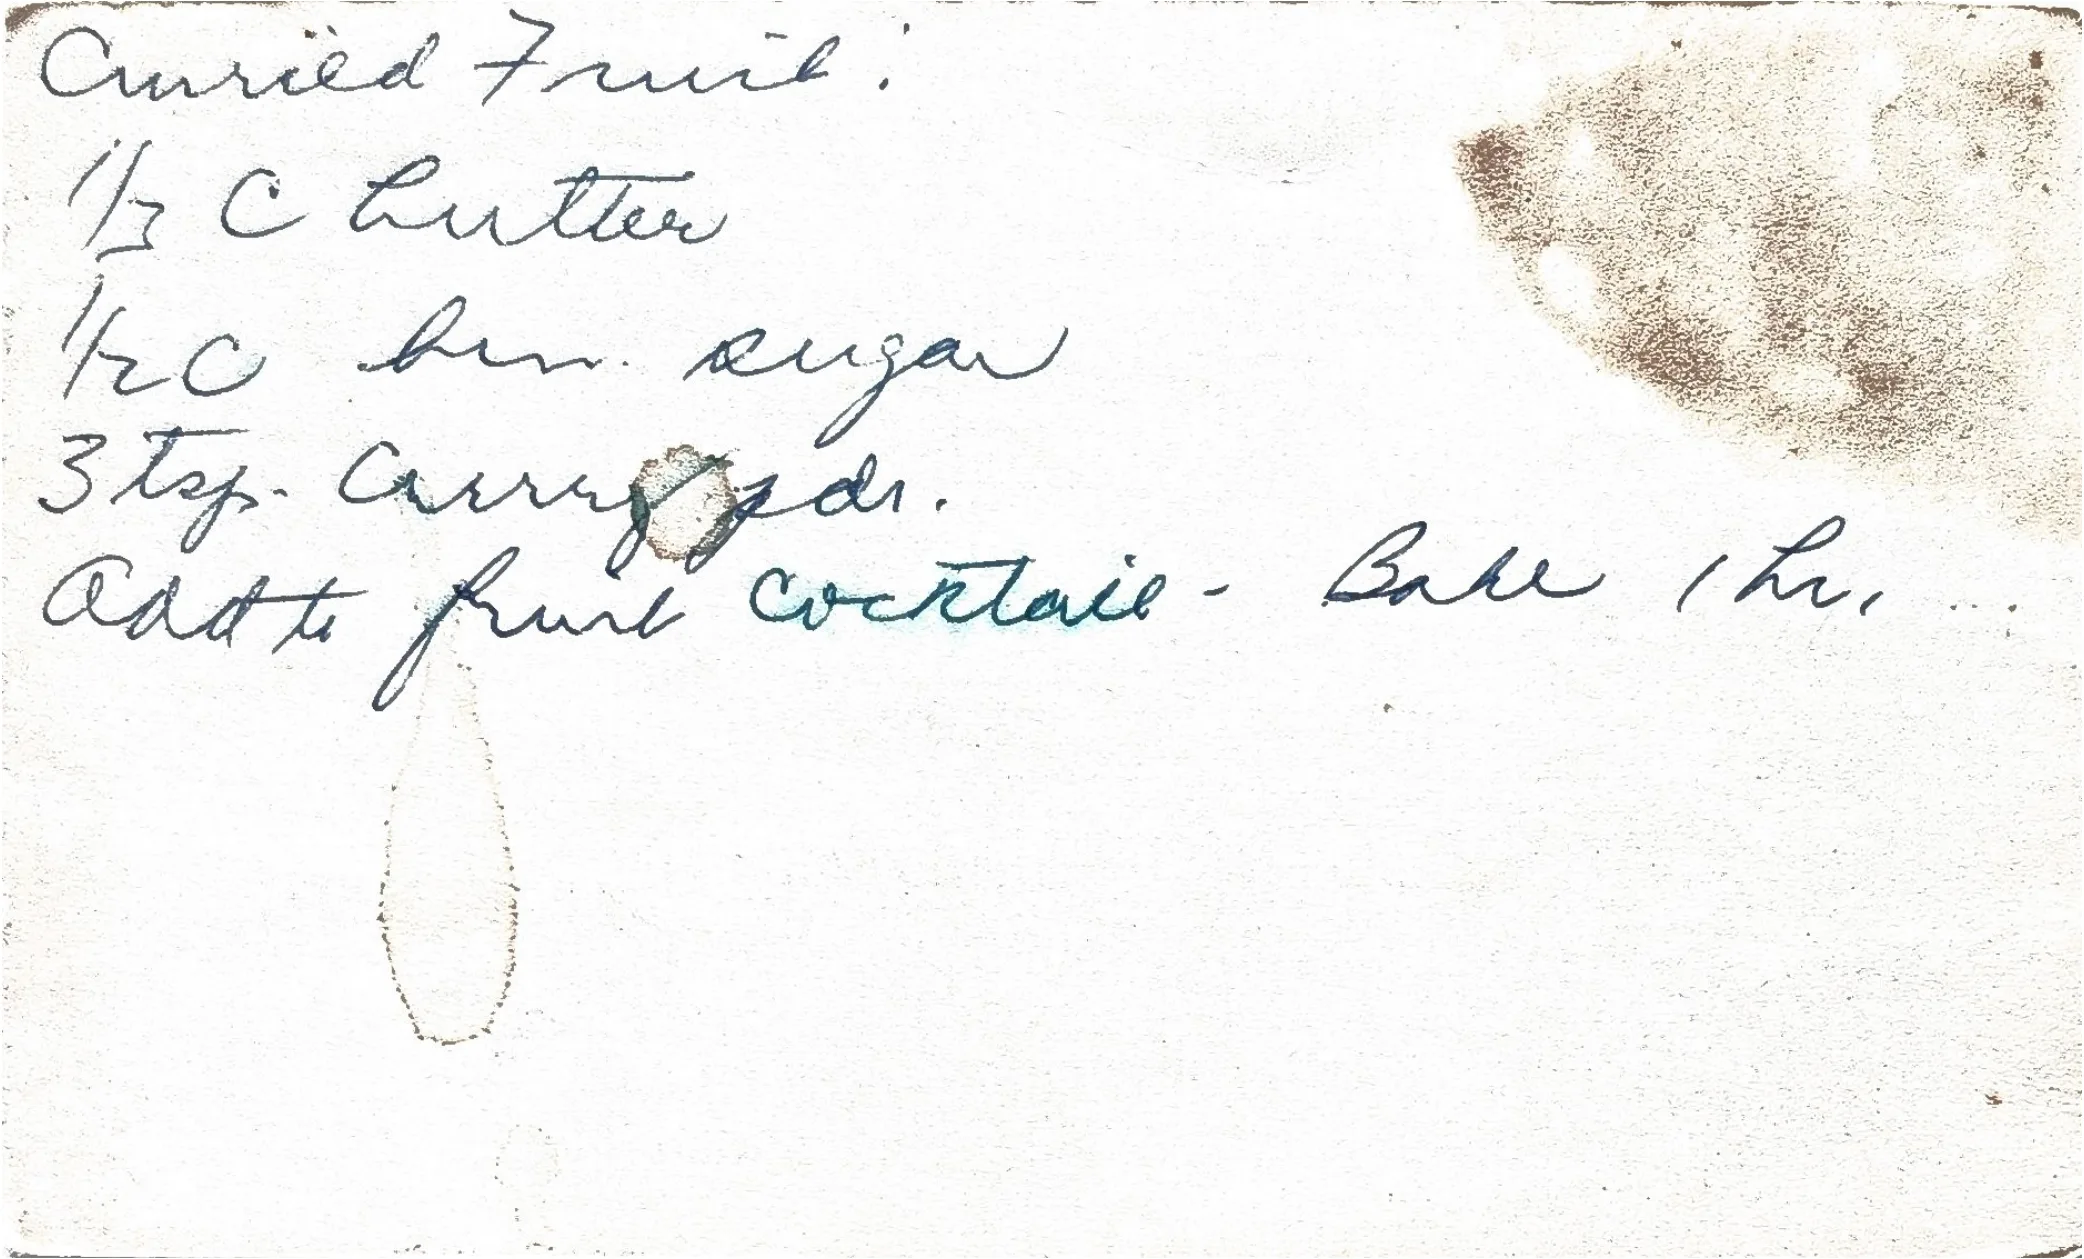 Curried Fruit:
1/3 C butter
1/2 C brn. sugar
3 tsp. Curry pdr.
Add to fruit cocktail - Bake 1 hr. ...